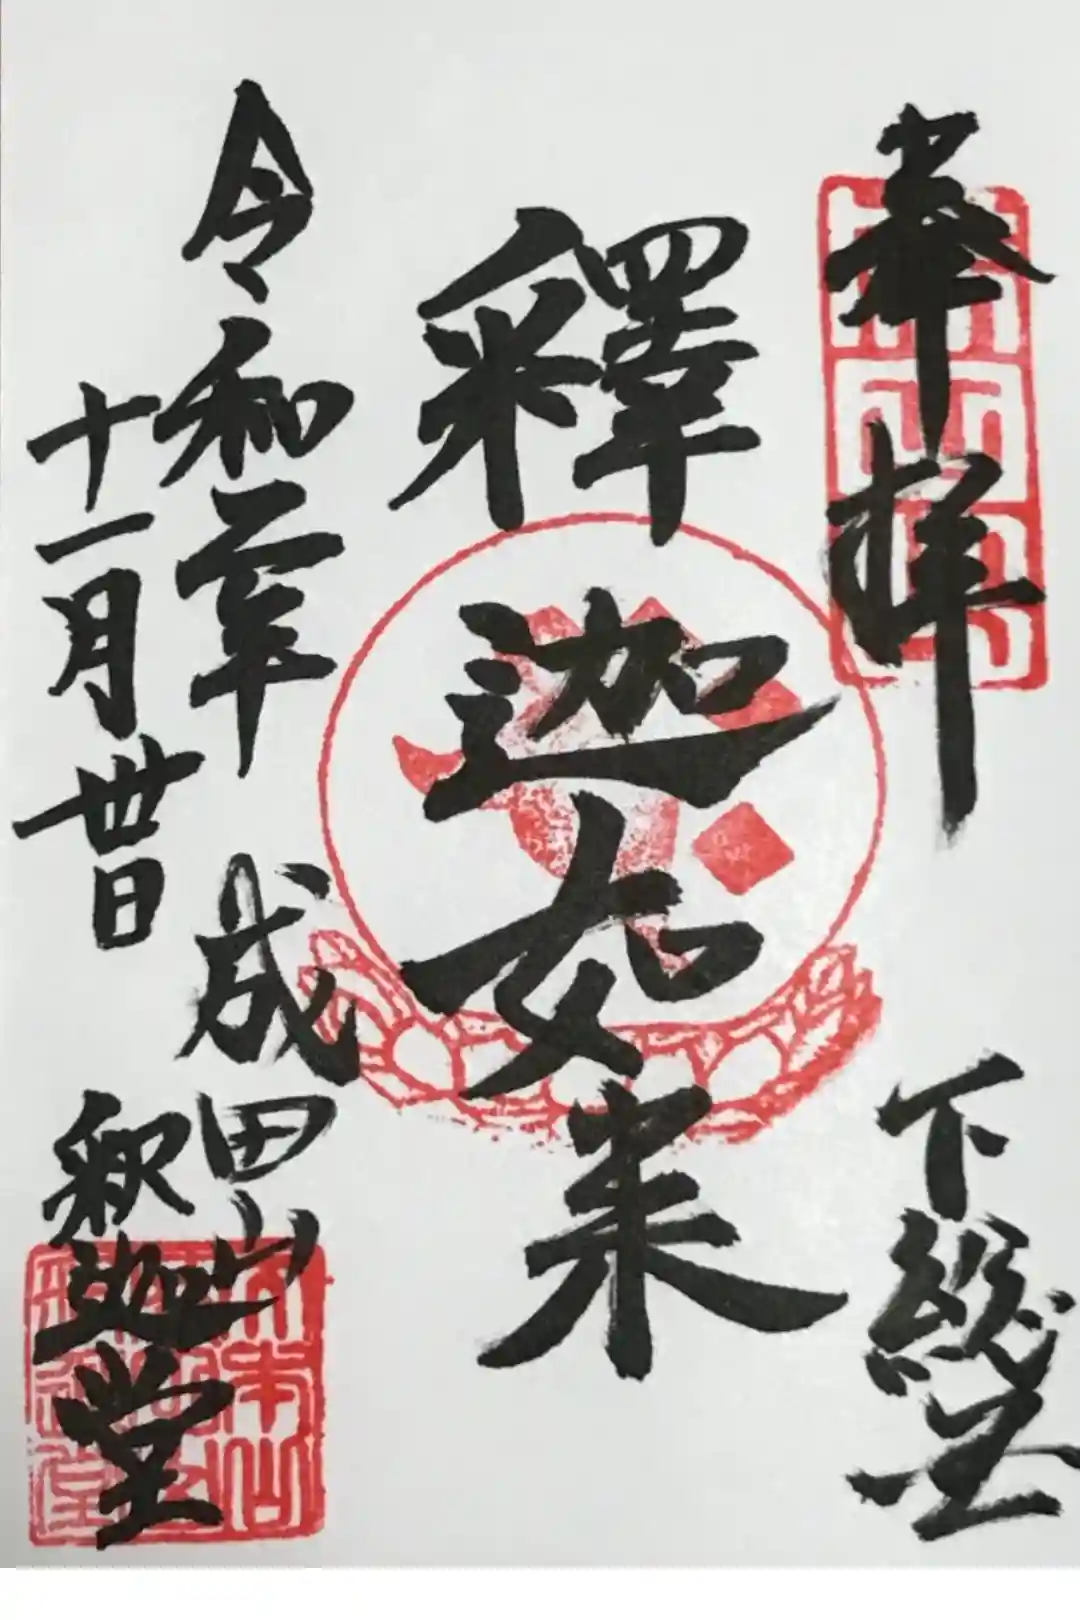 奉拝 下総国
釋迦如来
令和二年 成田山
十一月丗日 釈迦堂